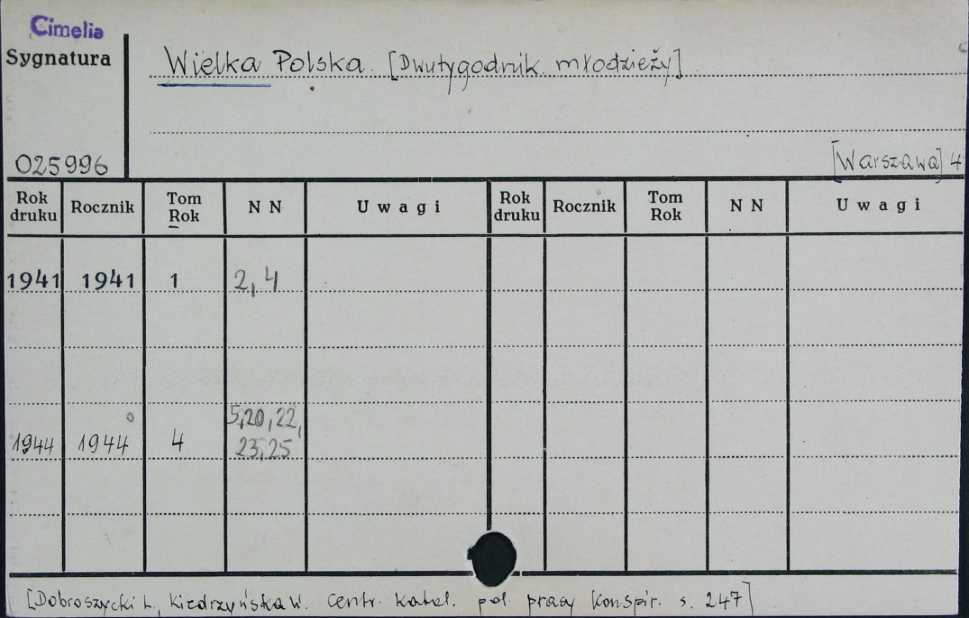 Cimelia
Sygnatura
Wielka Polska. [Dwutygodnik młodzieży]
025996
[Warszawa] 4
Rok druku Rocznik Tom Rok N N Uwagi Rok druku Rocznik Tom Rok N N Uwagi
1941 1941 1 2, 4
5, 20, 22,
1944 1944 4 23, 25
[Dobroszycki L., Kiedrzyńska W. Centr. katal. pol prasy konspir. s. 247]